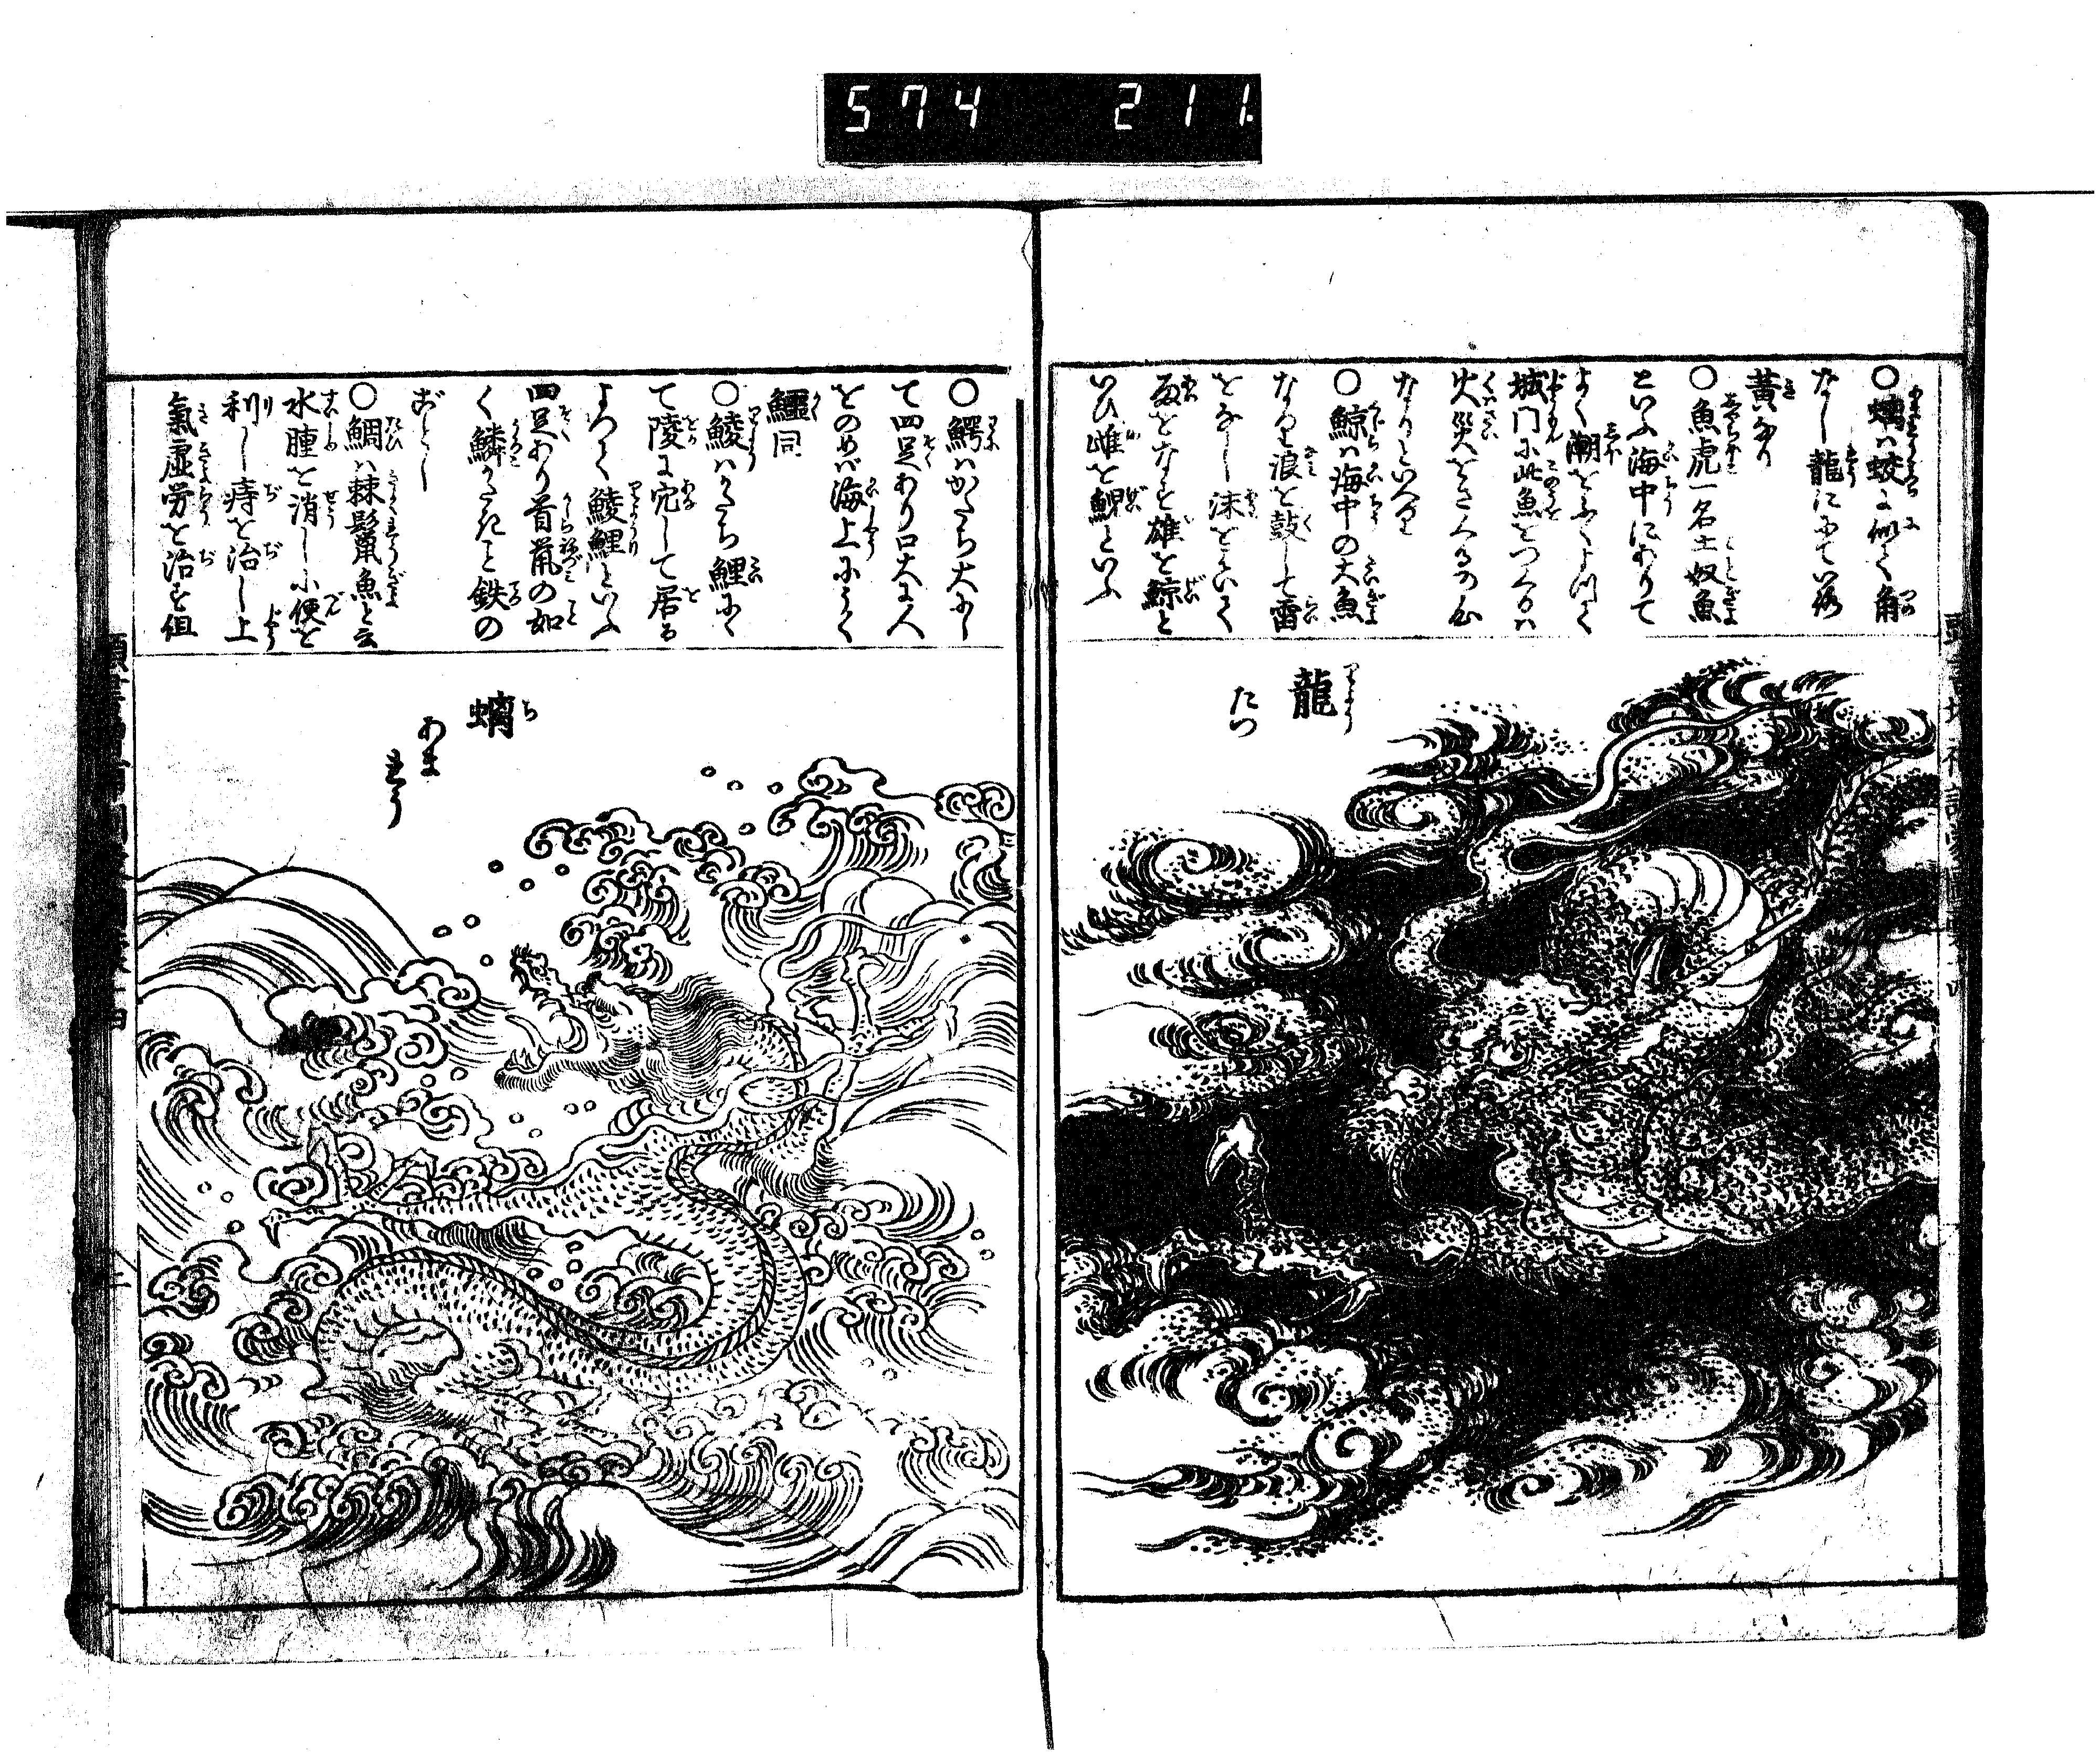 574 211
○螭ハ蛟に似て角
なし龍ににて
黄なり
○魚虎一名土奴魚
といふ海中にありて
よく潮をふくよつて
城門に此魚をつくるハ
火災をさくるの
なりといへり
○鯨ハ海中の大魚
なり浪を鼓して雷
をなし沫をはいて
雨をなす雄を鯨と
いひ雌を鯢といふ
龍
りよう
たつ
○鰐ハかたち大にし
て四足あり口大に人
をのめバ海上にうく
鱷同
○鯪ハかたち鯉にて
て陵に穴して居る
よつて鯪鯉といふ
四足あり首鼠の如
く鱗かたきこと鉄の
ごとし
○鯛ハ棘鬣魚と云
水腫を消し小便を
利し痔を治し上
氣虚労を治す但
螭
ち
あま
りう